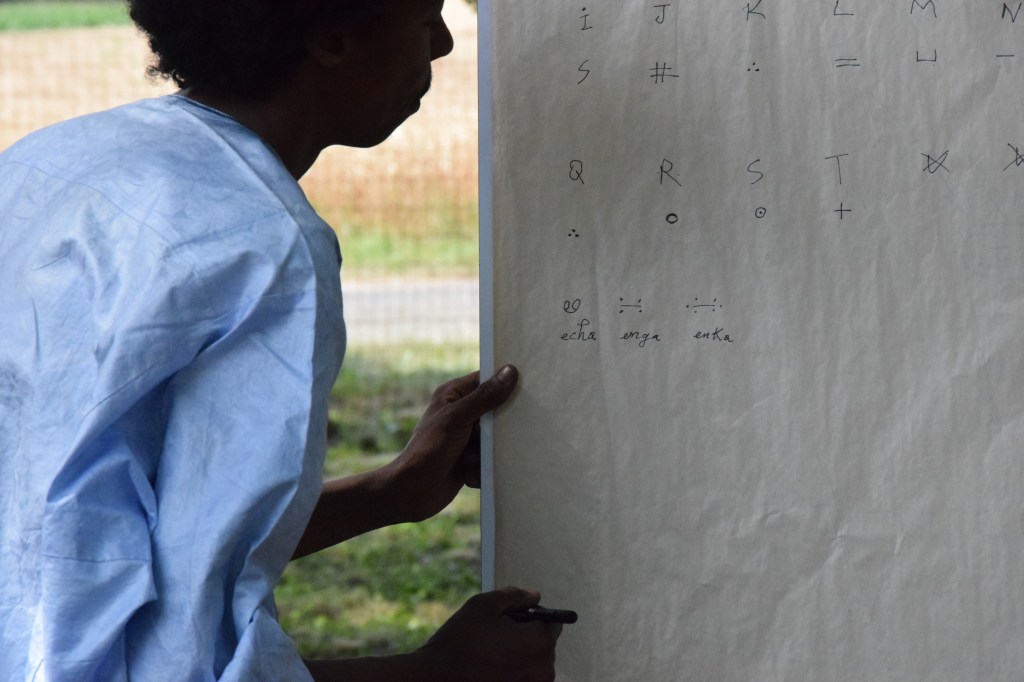 i J K L M N
S # ∴ = ⊔ —
Q R S T
∴ ○ ⊙ +
echa enga enka